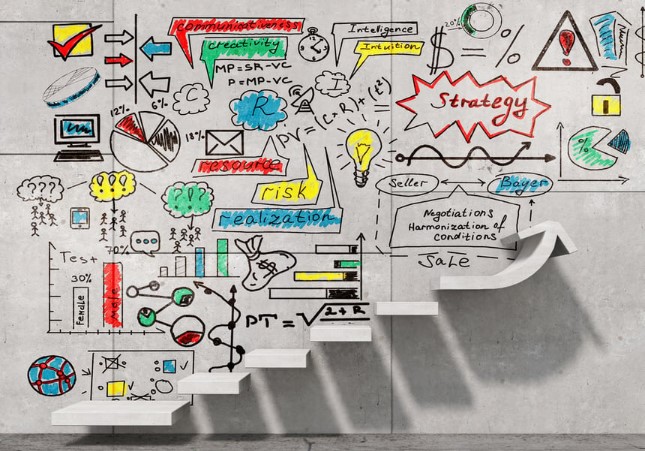 communicativeness
creativity
MP=SR-VC
P=MP-VC
Intelegence
Intuition
20%
$ = %
C
R
I
Strategy
%
12%
6%
18%
PV = (C+R) + (t²)
resource
risk
realization
Seller
Bayer
Negotiations
Harmonization of
Conditions
Sale
???
!?!
Test
70%
30%
female
male
$
PT = √2+R